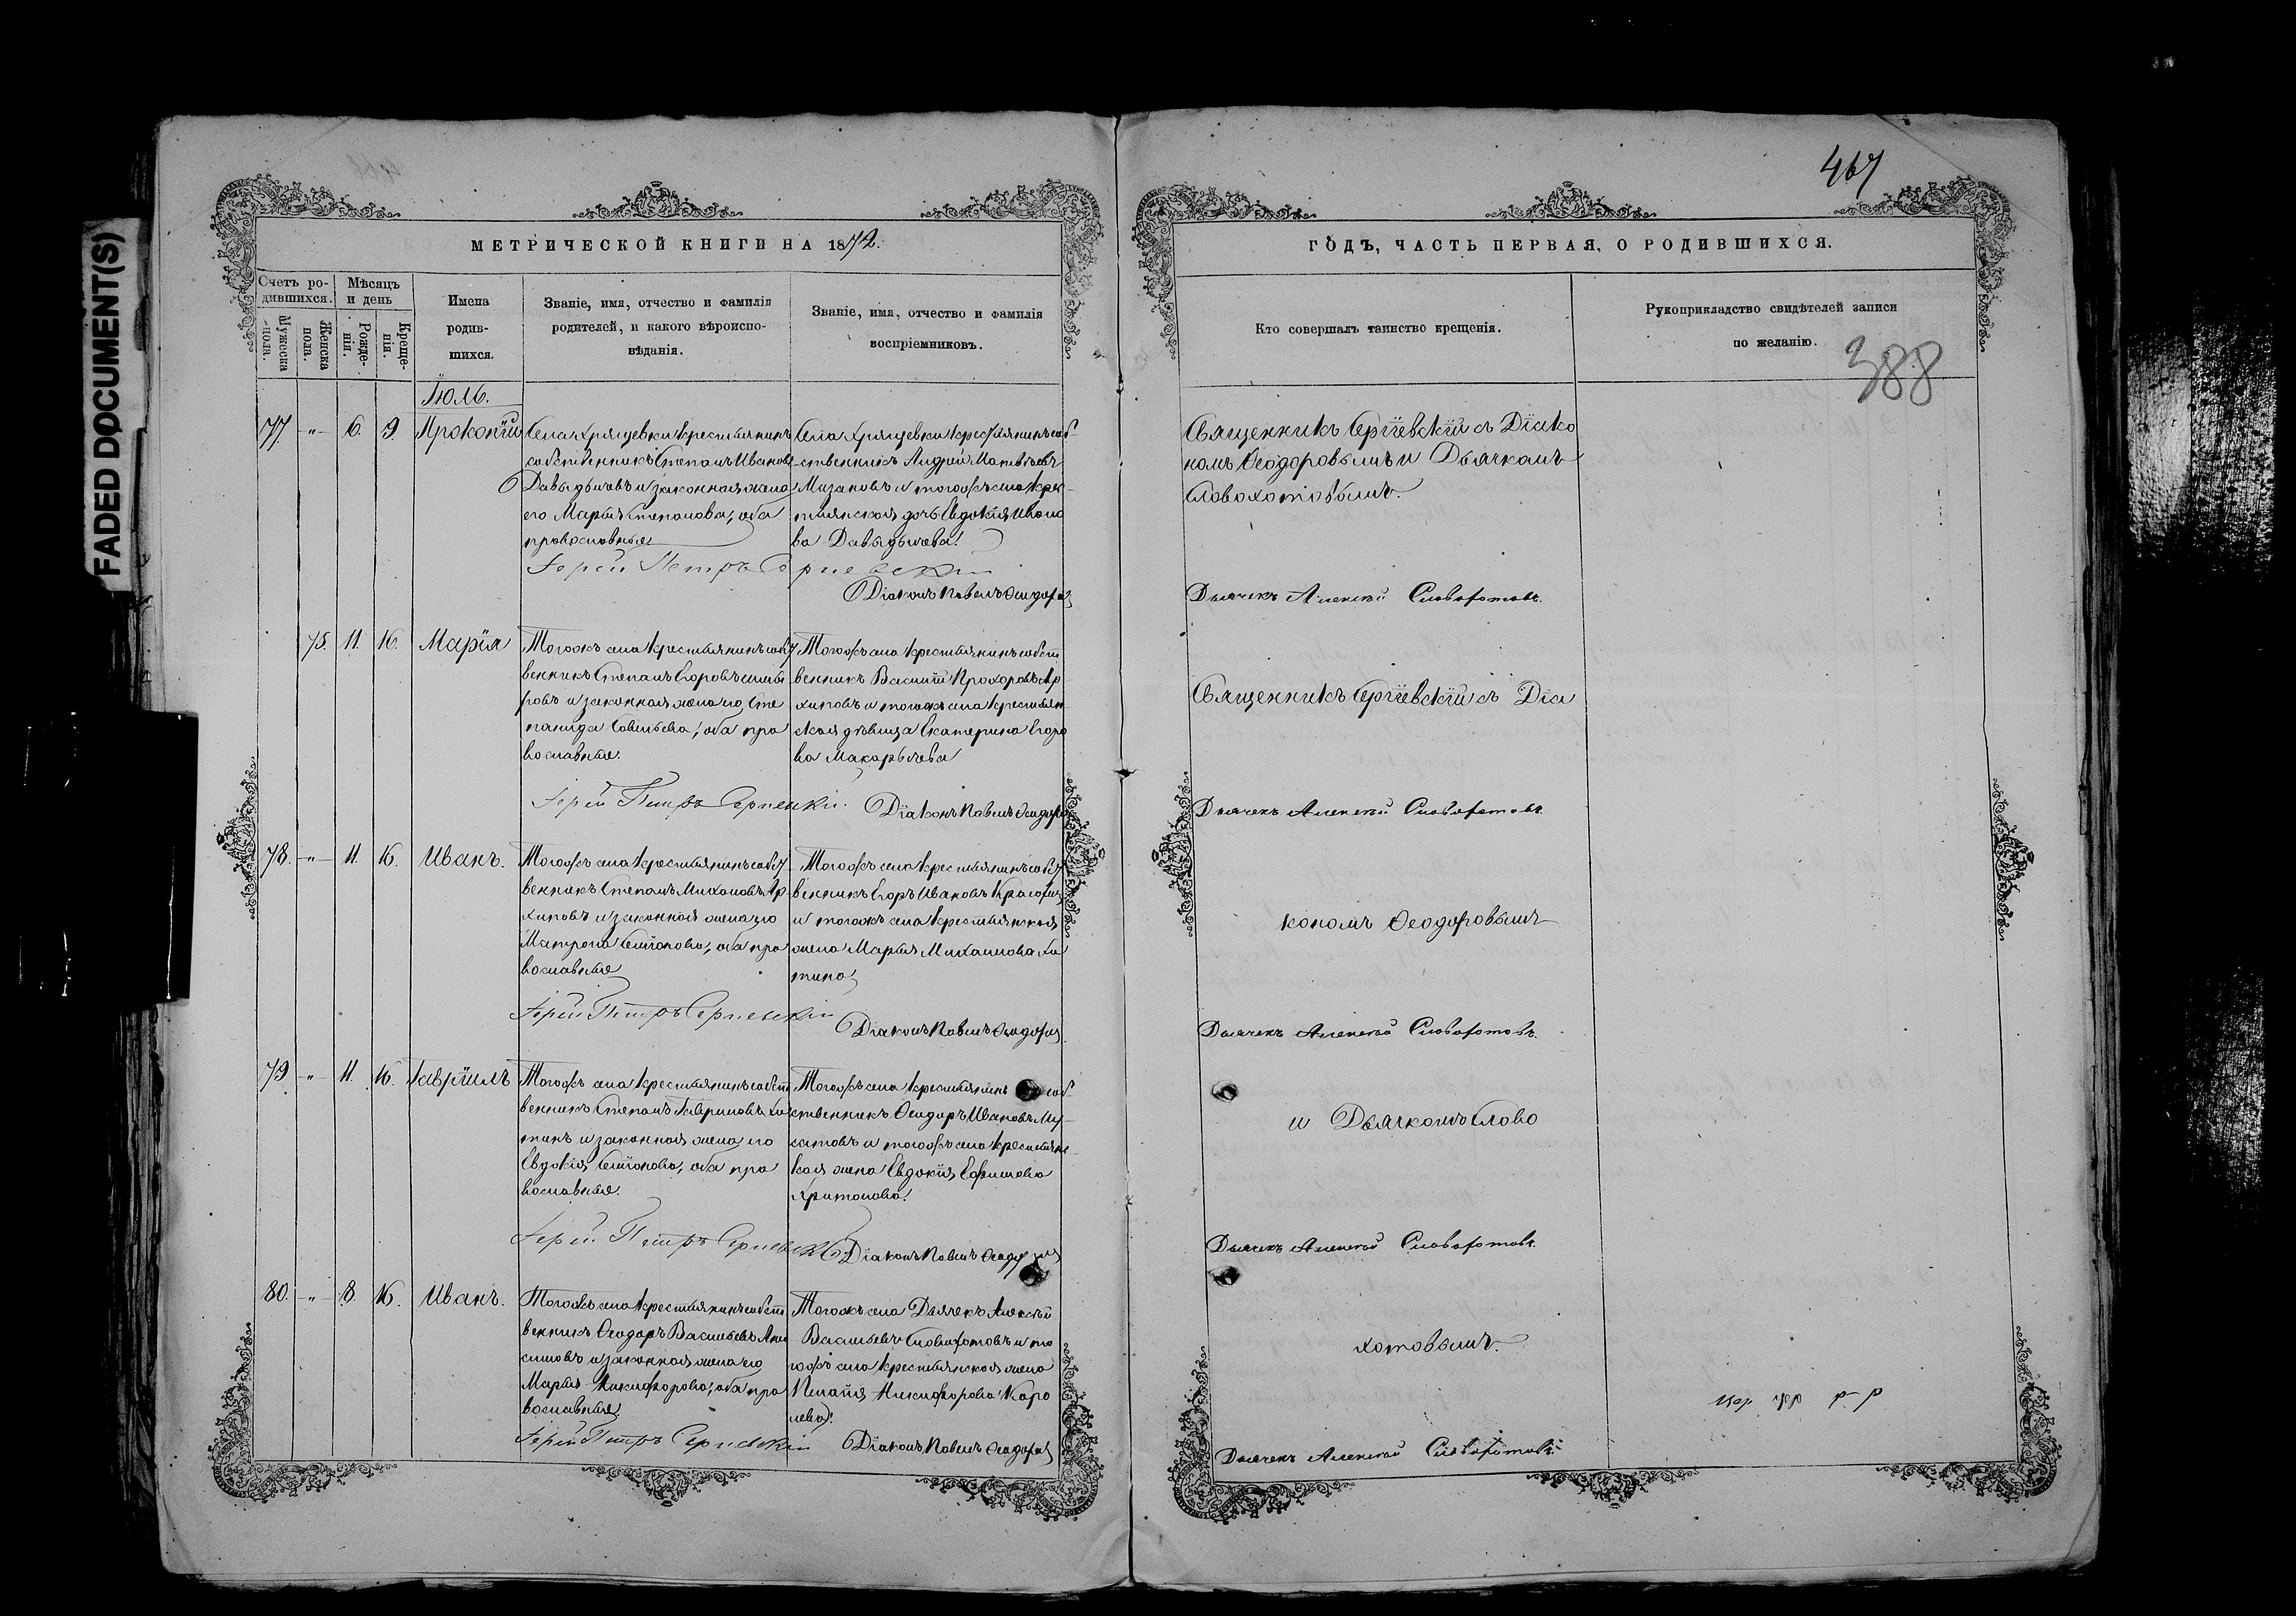 FADED DOCUMENT(S)
467
МЕТРИЧЕСКОЙ КНИГИ НА 1872.
ГОДЪ, ЧАСТЬ ПЕРВАЯ, О РОДИВШИХСЯ.
388
Счетъ ро-
дившихся.
Мужеска
пола.
Женска
пола.
Мѣсяцъ
и день
Рожде-
нія.
Креще-
нія.
Имена
родив-
шихся.
Званіе, имя, отчество и фамилія
родителей, и какого вѣроиспо-
вѣданія.
Званіе, имя, отчество и фамилія
воспріемниковъ.
Кто совершалъ таинство крещенія.
Рукоприкладство свидѣтелей записи
по желанію.
Іюль.
77 " 6. 9. Прокопій
Села Хрящевки крестьянинъ
собственникъ Степанъ Ивановъ
Давыдычевъ и законная жена
его Марья Степанова, оба
православные
Села Хрящевки крестьянинъ соб-
ственникъ Андрей Матвѣевъ
Мизановъ и тогожъ села крес-
тьянская дочь Евдокія Ивано
ва Давыдычева.
Іерей Петръ Сергіевскій
Діаконъ Павелъ Ѳеодоровъ
Священникъ Сергіевскій съ Діако
номъ Ѳеодоровымъ и Дьячкомъ
Словохотовымъ.
Дьячекъ Алексѣй Словохотовъ.
75. 11. 16. Марія
Тогожъ села крестьянинъ собст
венникъ Степанъ Егоровъ
ровъ и законная жена его Сте
панида Савельева, оба пра
вославные.
Тогожъ села крестьянинъ собст
венникъ Василій Прохоровъ Ар
хиповъ и тогожъ села крестьян
ская дѣвица Екатерина Егоро
ва Макарычева
Іерей Петръ Сергіевскій.
Діаконъ Павелъ Ѳеодоровъ
Священникъ Сергіевскій съ Діа
Дьячекъ Алексѣй Словохотовъ.
78. " 11. 16. Иванъ.
Тогожъ села крестьянинъ собст
венникъ Степанъ Михайловъ Ар
хиповъ и законная жена его
Матрона Семіонова, оба пра
вославные
Тогожъ села крестьянинъ собст
венникъ Егоръ Ивановъ
и тогожъ села крестьянская
жена Марья Михаилова Хи
тина
Іерей Петръ Сергіевскій
Діаконъ Павелъ Ѳеодоровъ
кономъ Ѳеодоровымъ
Дьячекъ Алексѣй Словохотовъ.
79 " 11. 16. Гавріилъ
Тогожъ села крестьянинъ собст
венникъ Степанъ Гавриловъ Хи
тинъ и законная жена его
Евдокія Семіонова, оба пра
вославные.
Тогожъ села крестьянинъ соб-
ственникъ Ѳеодоръ Ивановъ Му
сатовъ и тогожъ села крестьянс
кая жена Евдокія Ефимова
Харитонова.
Іерей Петръ Сергіевскій
Діаконъ Павелъ Ѳеодоровъ
и Дьячкомъ Слово
Дьячекъ Алексѣй Словохотовъ.
80. " 8. 16. Иванъ.
Тогожъ села крестьянинъ собст
венникъ Ѳеодоръ Васильевъ Ани
симовъ и законная жена его
Марья Никифорова, оба пра
вославные.
Тогожъ села Дьячекъ Алексѣй
Васильевъ Словохотовъ и то
гожъ села крестьянская жена
Пелагія Никифорова Коро
лева.
Іерей Петръ Сергіевскій
Діаконъ Павелъ Ѳеодоровъ
хотовымъ.
Дьячекъ Алексѣй Словохотовъ